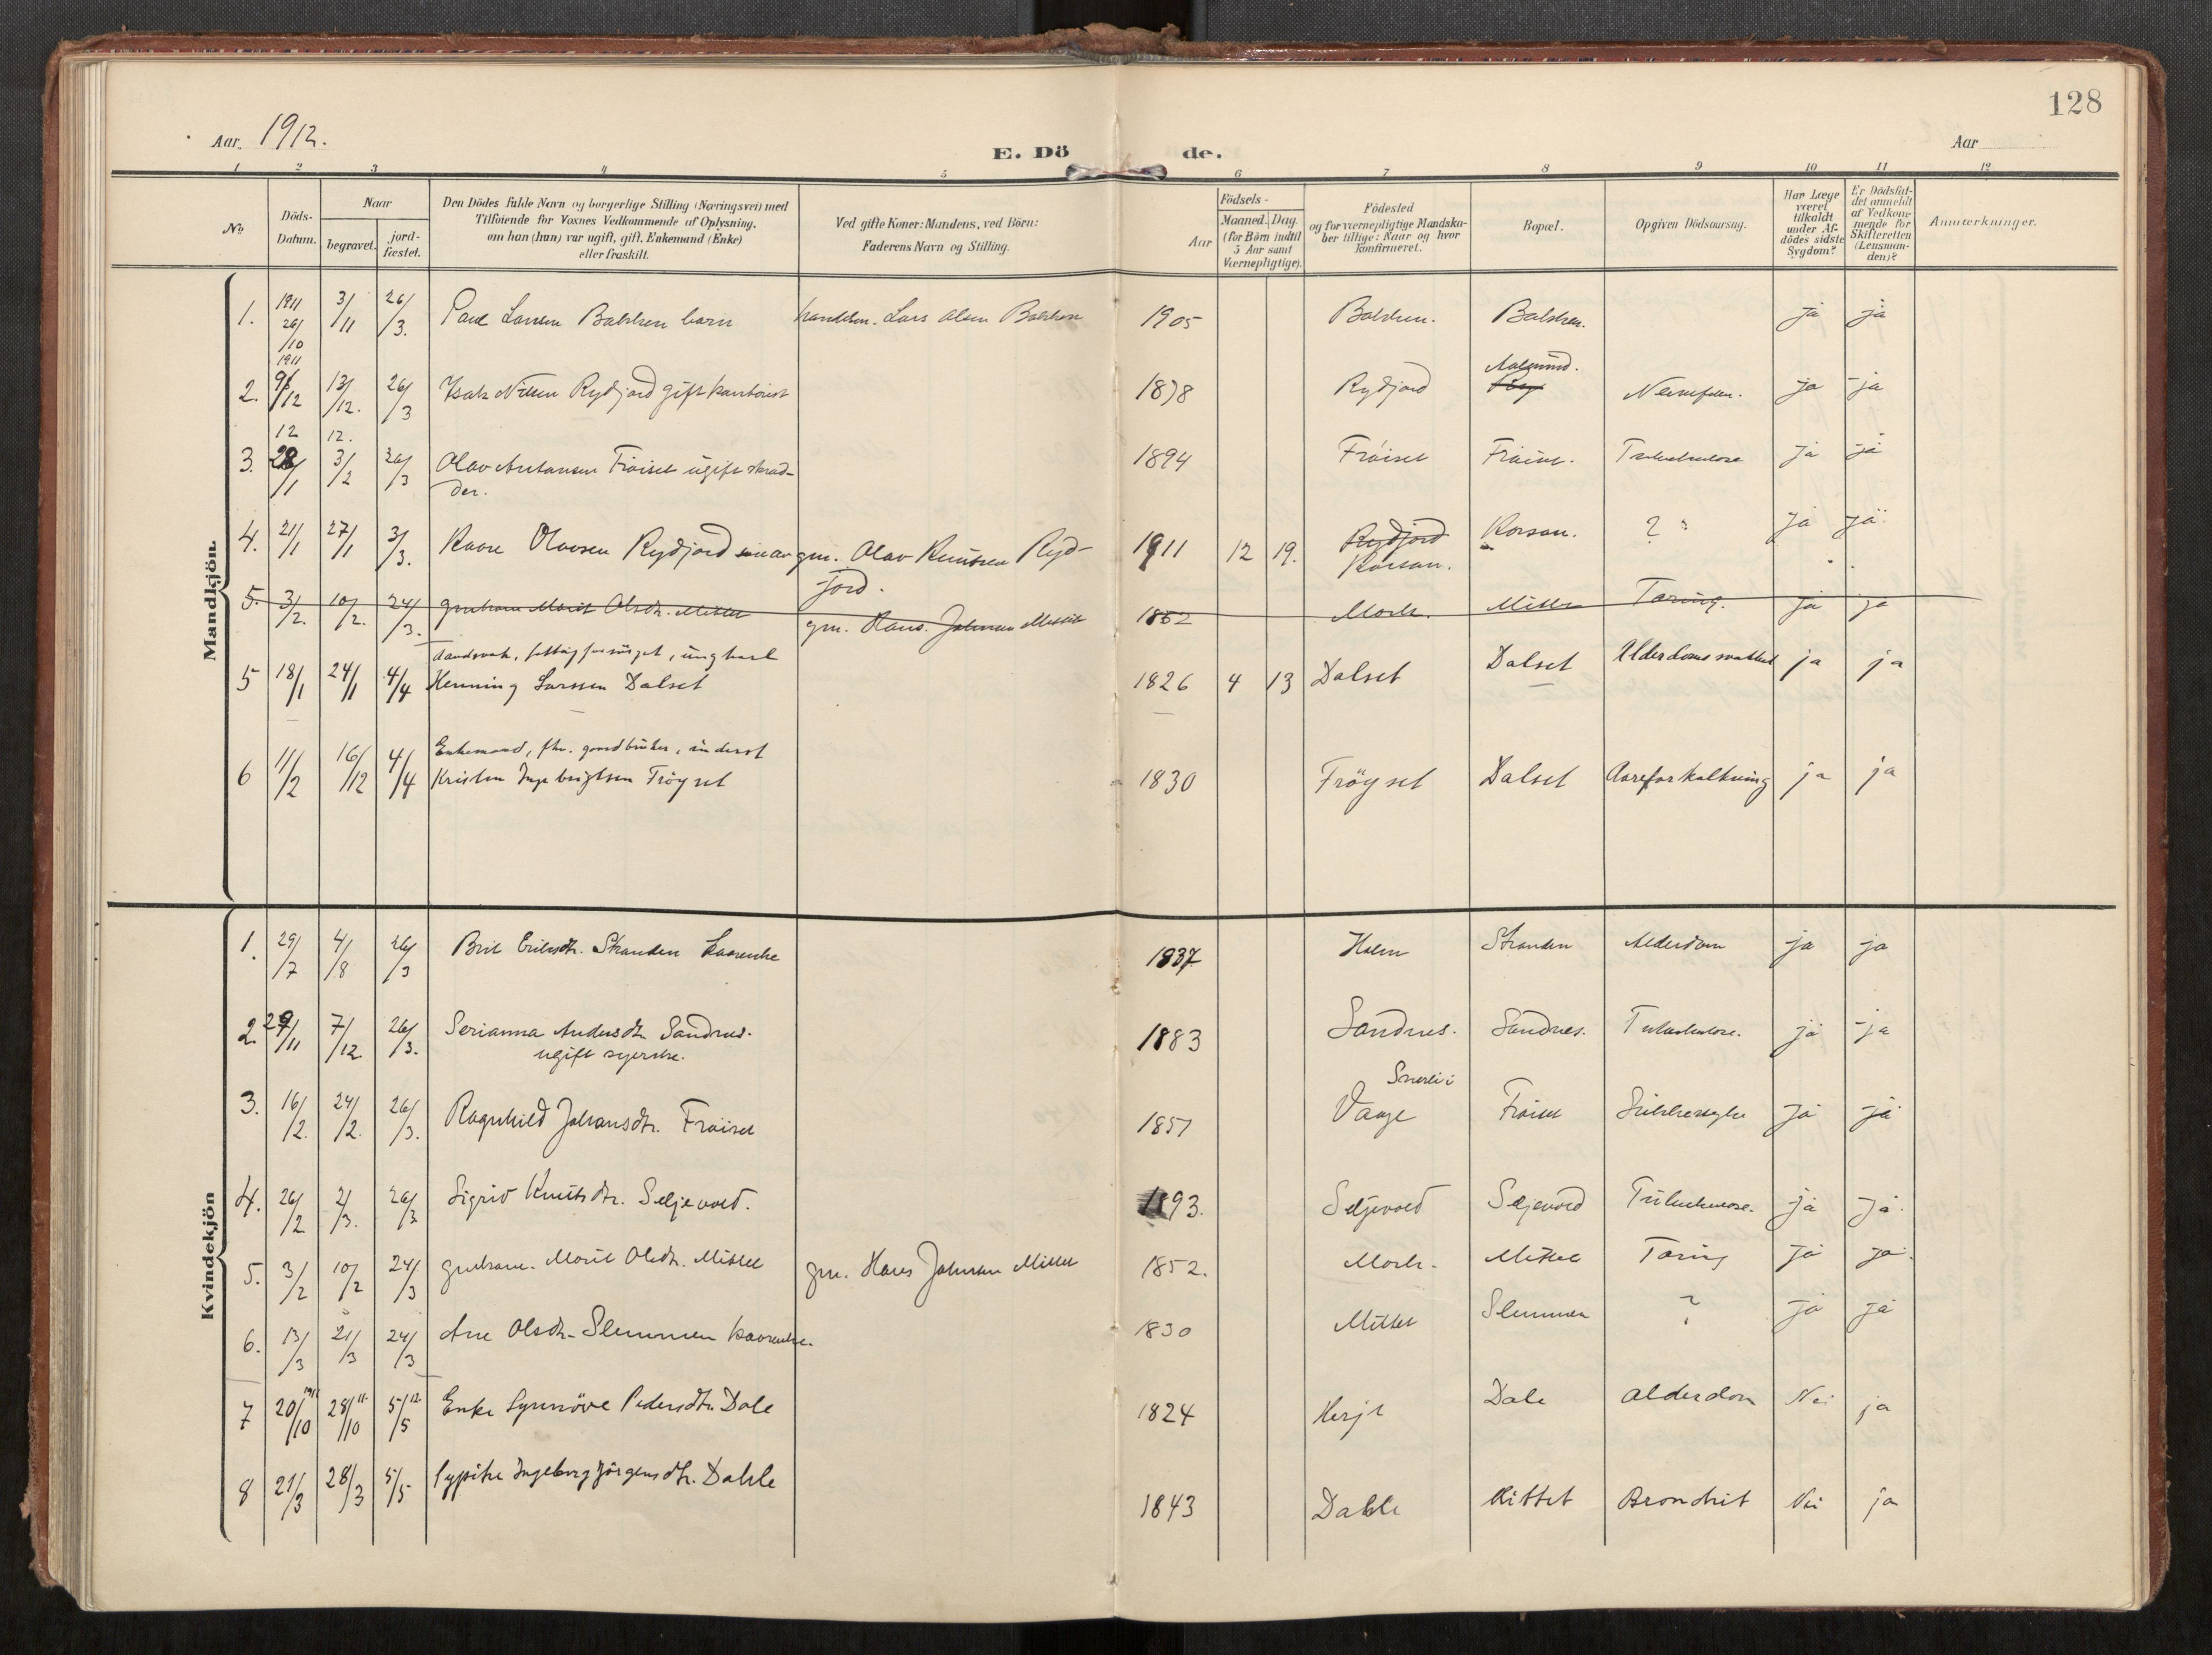 128
Aar 1912.
E. Dö de.
Aar
1 2 3 4 5 6 7 8 9 10 11 12
No
Döds-Datum.
Naar
begravet.
jord-fæstet.
Den Dödes fulde Navn og borgerlige Stilling (Næringsvei) med
Tilföiende for Voxnes Vedkommende af Oplysning,
om han (hun) var ugift, gift, Enkemand (Enke)
eller fraskilt.
Ved gifte Koner: Mandens, ved Börn:
Faderens Navn og Stilling.
Födsels-
Aar
Maaned. Dag.
(for Börn indtil
5 Aar samt
Værnepligtige).
Födested
og for værnepligtige Mandska-
ber tillige: Naar og hvor
konfirmeret.
Bopæl.
Opgiven Dödsaarsag.
Har Læge
været
tilkaldt
under Af-
dödes sidste
Sygdom?
Er Dödsfal-
det anmeldt
af Vedkom-
mende for
Skifteretten
(Lensman-
den)?
Anmærkninger.
Mandkjön.
1. 1911 26/10 3/11 26/3. Paul Larsen barn Lars Olsen 1905 ja ja
1911
2. 9/12 13/12. 26/3 Isak Nilsen Rydjord gift kontorist 1878 Rydjord Aalesund. ja ja
12 12.
3. 28/1 3/2 26/3 Olav Fröiset ugift skræd-
der. 1894 Fröiset Fröiset. Tuberkulose ja ja
4. 21/1 27/1 3/3. Kaare Olavsen Rydjord søn av gm. Olav Knutsen Ryd-
jord. 1911 12 19. Rydjord Korsan. Korsan. ? ja ja
5. 3/2. 10/2. 24/3. Marit Olsdtr. Mittet gm. Hans Johnsen Mittet 1852 Mork. Mittet Tæring. ja ja
Aandsvak, fattigforsörget, ungkarl
5 18/1 24/1 4/4 Henning Larssen Dalset 1826 4 13 Dalset Dalset Alderdomssvakhet ja ja
Enkemand, fhv. gaardbruker, inderst
6 11/2 16/12 4/4 Kristen Ingebrigtsen Fröyset 1830 Fröyset Dalset Aareforkalkning ja ja
Kvindekjön
1. 29/7 4/8 26/3 Brit Eriksdtr. Stranden kaarenke 1837 Holm Stranden Alderdom ja ja
2. 29/11 7/12. 26/3. Serianna Andersdtr. Sandnes.
ugift syerske. 1883 Sandnes. Sandnes. Tuberkulose. ja ja
3. 16/2. 24/2. 26/3. Ragnhild Johansdtr. Fröiset 1851 i
Vaage Fröiset Sukkersyke ja ja
4. 26/2 2/3. 26/3 Sigrid Knutsdtr. Seljevold. 1893. Seljevold Seljevold Tuberkulose. ja ja
5. 3/2 10/2 24/3 Marit Olsdtr. Mittet gm. Hans Johnsen Mittet 1852. Mork. Mittet Tæring ja ja
6. 13/3 21/3 24/3 Ane Olsdtr. Slemmen kaarenke. 1830 Mittet Slemmen ? ja ja
7 20/10 1911 28/10 11. 5/5 12 Enke Synnöve Pedersdtr. Dale 1824 Herje Dale Alderdom Nei ja
8 21/3 28/3 5/5 Sypike Ingeborg Jörgensdtr. Dahle 1843 Dahle Mittet Bronchit Nei ja